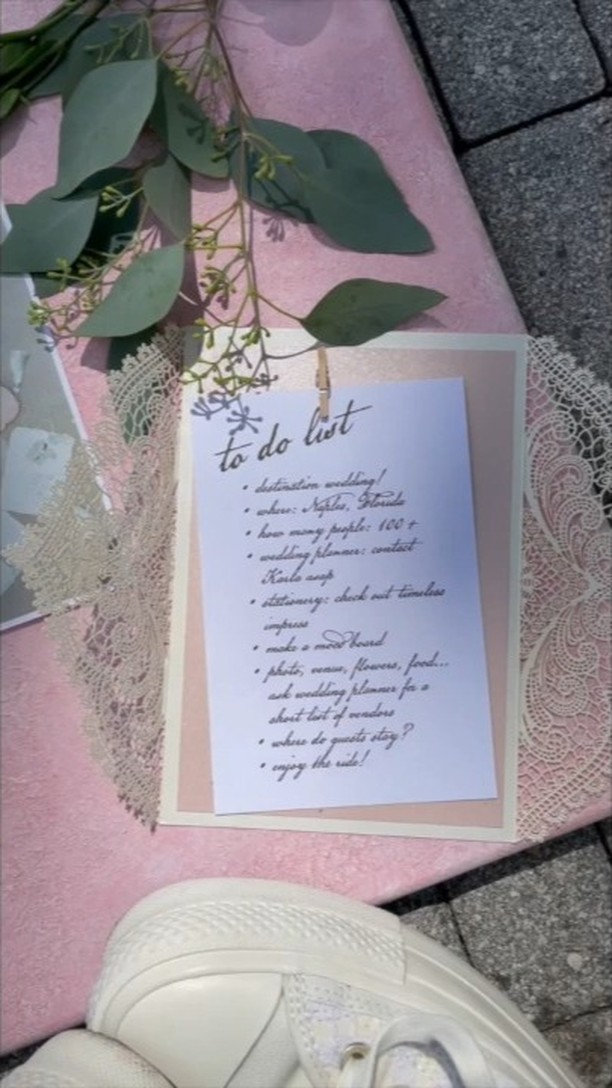 to do list
• destination wedding!
• where: Naples, Florida
• how many people: 100 +
• wedding planner: contact
Karla asap
• stationery: check out timeless
impress
• make a mood board
• photo, venue, flowers, food...
ask wedding planner for a
short list of vendors
• where do guests stay?
• enjoy the ride!